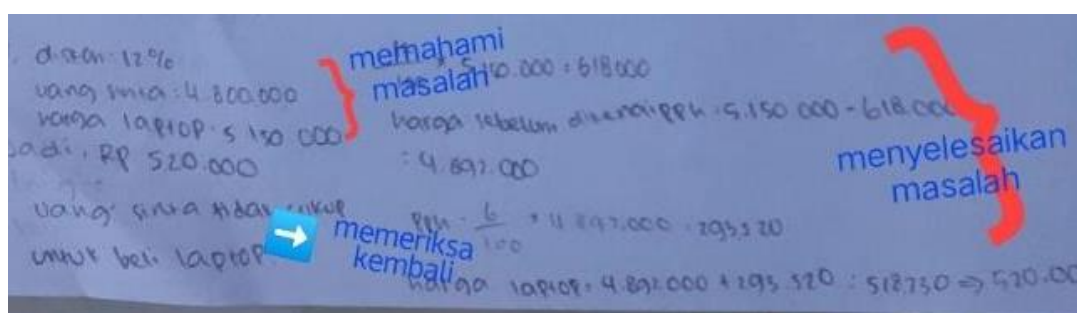 diskon: 12%
uang sinta: 4.800.000
harga laptop: 5 150 000
Jadi, RP 520.000
uang sinta tidak cukup
untuk beli laptop
memahami
masalah
.000 = 618000
harga sebelum dikenai PPN: 5.150 000 - 618.000
: 4.892.000
PPN = 6/100 × 4 892.000 = 293520
harga laptop = 4.892.000 + 293.520 : 518730 ⇒ 520.00
menyelesaikan
masalah
memeriksa
kembali